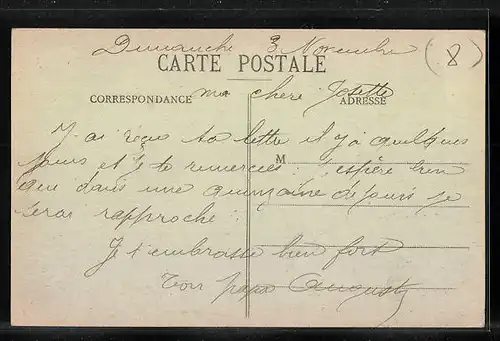 Dimanche 3 Novembre
(8)
CARTE POSTALE
CORRESPONDANCE
ADRESSE
ma chere Josette
J'ai reçu ta lettre il y a quelques
M
jours et je te remercies. J'espère bien
que dans une quinzaine de jours je
serai rapproché.
Je t'embrasse bien fort
Ton papa Auguste